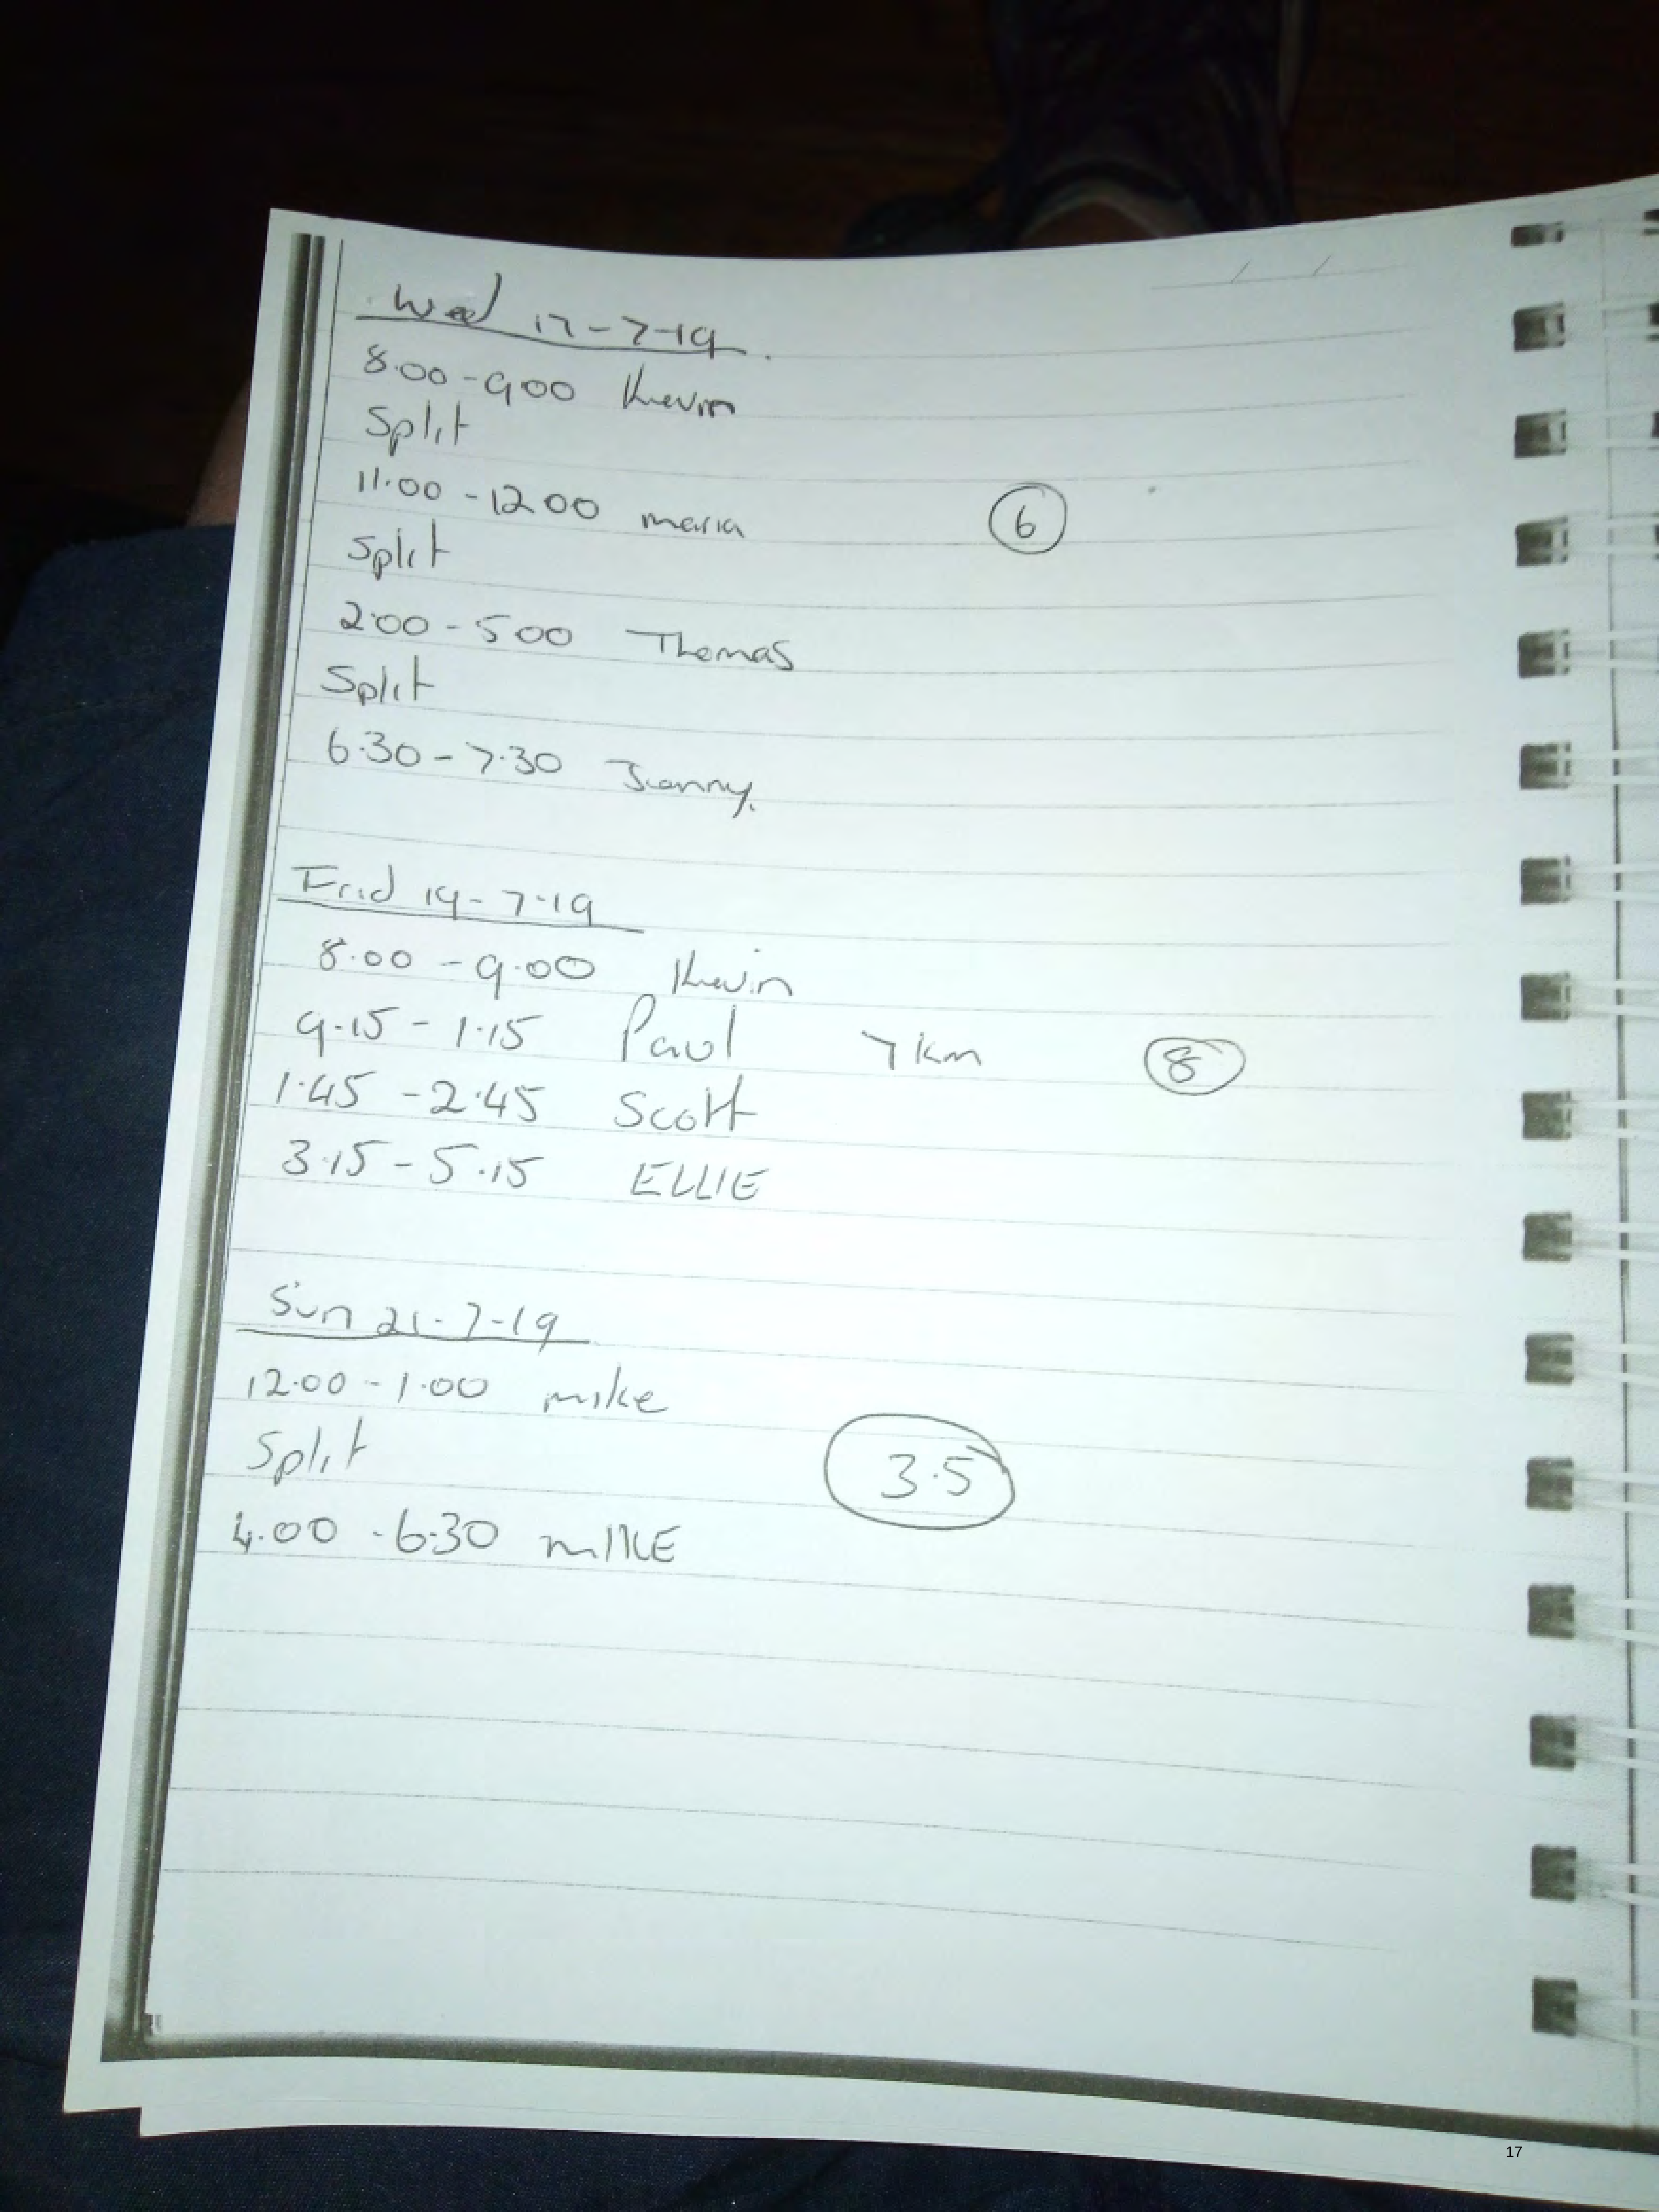 Wed 17-7-19.
8.00-9.00 Kevin
Split
11.00-12.00 maria
6
Split
2.00-5.00 Thomas
Split
6.30-7.30 Jenny.
Frid 19-7-19
8.00-9.00 Kevin
9.15-1.15 Paul 7km
8
1.45-2.45 Scott
3.15-5.15 ELLIE
Sun 21-7-19
12.00-1.00 mike
Split
3.5
4.00-6.30 mIKE
17